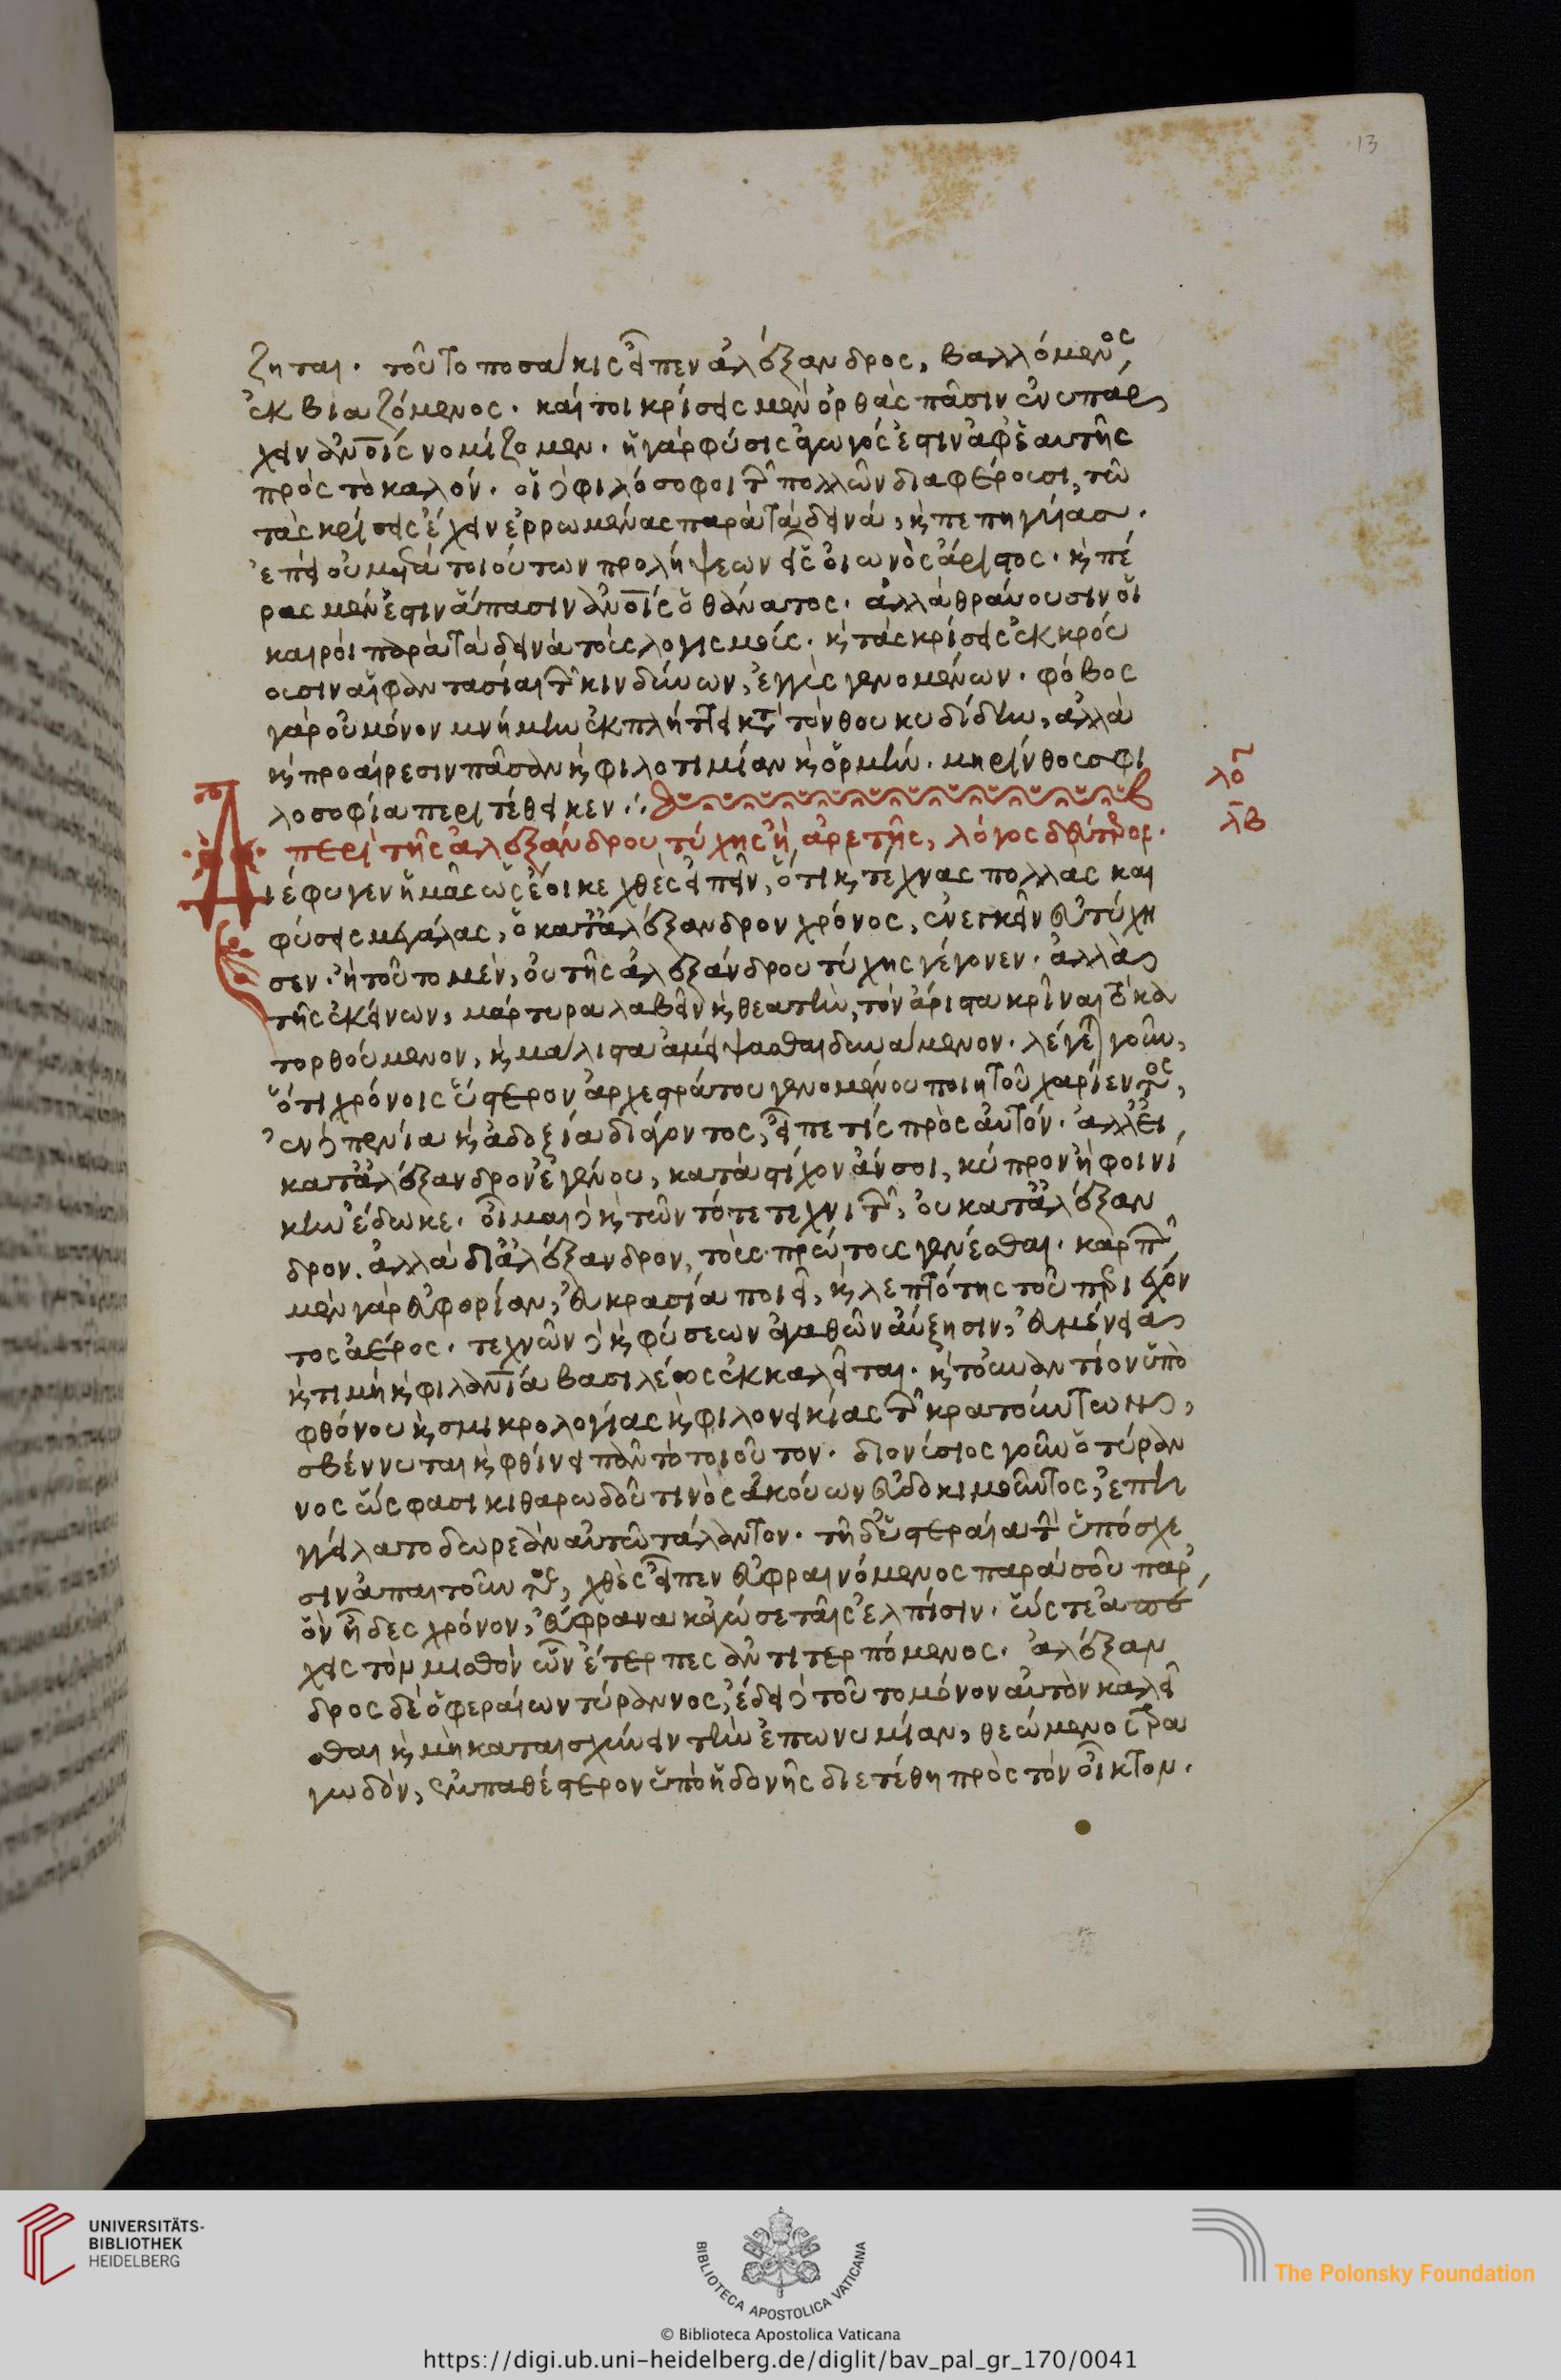 13
ζηται. τοῦτο ποσάκις εἶπεν ἀλέξανδρος, βαλλόμενος,
ἐκβιαζόμενος. καίτοι κρίσεις μὲν ὀρθὰς πᾶσιν ἐνυπάρ
χειν ἀνοις νομίζομεν. ἡ γὰρ φύσις ἀγωγός ἐστιν ἀφ ἑαυτῆς
πρὸς τὸ καλόν. οἱ δὲ φιλόσοφοι τῶν πολλῶν διαφέρουσι, τῶ
τὰς κρίσεις ἔχειν ἐρρωμένας παρὰ τὰ δεινά, καὶ πεπηγυίας.
ἐπεὶ οὐ μετὰ τοιούτων προλήψεων εἷς οἰωνὸς ἄριστος. καὶ πέ
ρας μὲν ἐστιν ἅπασιν ἀνοις ὁ θάνατος. ἀλλὰ θραύουσιν οἱ
καιροὶ παρὰ τὰ δεινὰ τοὺς λογισμούς. καὶ τὰς κρίσεις ἐκκρού
ουσιν αἱ φαντασίαι τῶν κινδύνων, ἐγγὺς γενομένων. φόβος
γὰρ οὐ μόνον μνήμην ἐκπλήττει κατὰ τὸν θουκυδίδην, ἀλλὰ
καὶ προαίρεσιν πᾶσαν καὶ φιλοτιμίαν καὶ ὁρμήν. μηρίνθους φι
λοσοφία περιτέθεικεν.
λο
περὶ τῆς ἀλεξάνδρου τύχης ἢ ἀρετῆς, λόγος δεύτερος.
λβ
Διέφυγεν ἡμᾶς ὡς ἔοικε χθὲς εἰπεῖν, ὅτι καὶ τέχνας πολλὰς καὶ
φύσεις μεγάλας, ὁ κατ ἀλέξανδρον χρόνος, ἐνεγκεῖν εὐτύχη
σεν. ἢ τοῦτο μὲν, οὐ τῆς ἀλεξάνδρου τύχης γέγονεν. ἀλλὰ
τῆς ἐκείνων, μάρτυρα λαβεῖν καὶ θεατὴν, τὸν ἄριστα κρῖναι τὸ κα
τορθούμενον, καὶ μάλιστα ἀμείψασθαι δυνάμενον. λέγεται γοῦν,
ὅτι χρόνοις ὕστερον ἀρχεστράτου γενομένου ποιητοῦ χαρίεντος,
ἐν δὲ πενία καὶ ἀδοξία διάγοντος, εἶπε τίς πρὸς αὐτόν. ἀλλ εἰ
κατ ἀλέξανδρον ἐγένου, κατὰ στίχον ἄν σοι, κύπρον ἢ φοινί
κην ἔδωκε. οἶμαι δὲ καὶ τῶν τότε τεχνιτῶν, οὐ κατ ἀλέξαν
δρον. ἀλλὰ δι ἀλέξανδρον, τοὺς πρώτους γενέσθαι. καρπῶν
μὲν γὰρ εὐφορίαν, εὐκρασία ποιεῖ, καὶ λεπτότης τοῦ περιέχον
τος ἀέρος. τεχνῶν δὲ καὶ φύσεων ἀγαθῶν αὔξησιν, εὐμένεια
καὶ τιμὴ καὶ φιλανία βασιλέως ἐκκαλεῖται. καὶ τοὐναντίον ὑπὸ
φθόνου καὶ σμικρολογίας καὶ φιλονεικίας τῶν κρατούντων,
σβέννυται καὶ φθίνει πᾶν τὸ τοιοῦτον. διονύσιος γοῦν ὁ τύραν
νος ὥς φασι κιθαρωδοῦ τινὸς ἀκούων εὐδοκιμοῦντος, ἐπηγ
γείλατο δωρεὰν αὐτῶ τάλαντον. τῆ δ ὑστεραία τὴν ὑπόσχε
σιν ἀπαιτοῦντος, χθὲς εἶπεν εὐφραινόμενος παρὰ σοῦ παρ
ὃν ἦδες χρόνον, εὔφρανα κἀγώ σε ταῖς ἐλπίσιν. ὥστε ἀπεῖ
χες τὸν μισθὸν ὧν ἔτερπες ἀντιτερπόμενος. ἀλέξαν
δρος δὲ ὁ φεραίων τύραννος, ἔδει δὲ τοῦτο μόνον αὐτὸν καλεῖ
σθαι καὶ μὴ καταισχύνειν τὴν ἐπωνυμίαν, θεώμενος τρα
γωδὸν, ἐμπαθέστερον ὑπὸ ἡδονῆς διετέθη πρὸς τὸν οἶκτον.
UNIVERSITÄTS-
BIBLIOTHEK
HEIDELBERG
BIBLIOTECA APOSTOLICA VATICANA
The Polonsky Foundation
© Biblioteca Apostolica Vaticana
https://digi.ub.uni-heidelberg.de/diglit/bav_pal_gr_170/0041